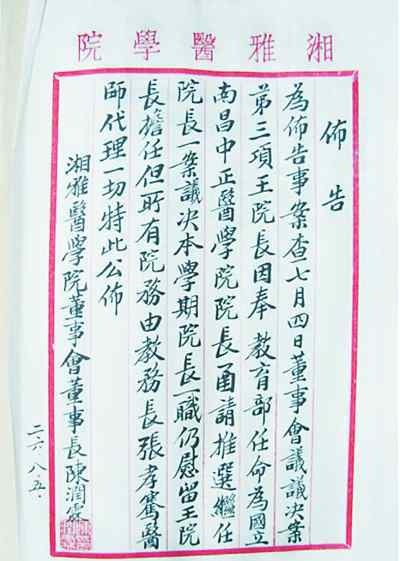 湘雅醫學院
佈告
為佈告事案查七月四日董事會議議決案
第三項王院長因奉 教育部任命為國立
南昌中正醫學院院長函請推選繼任
院長一案議决本學期院長一職仍慰留王院
長擔任但所有院務由教務長張孝騫醫
師代理一切特此公佈
湘雅醫學院董事會董事長陳潤霖
二六、八、五、